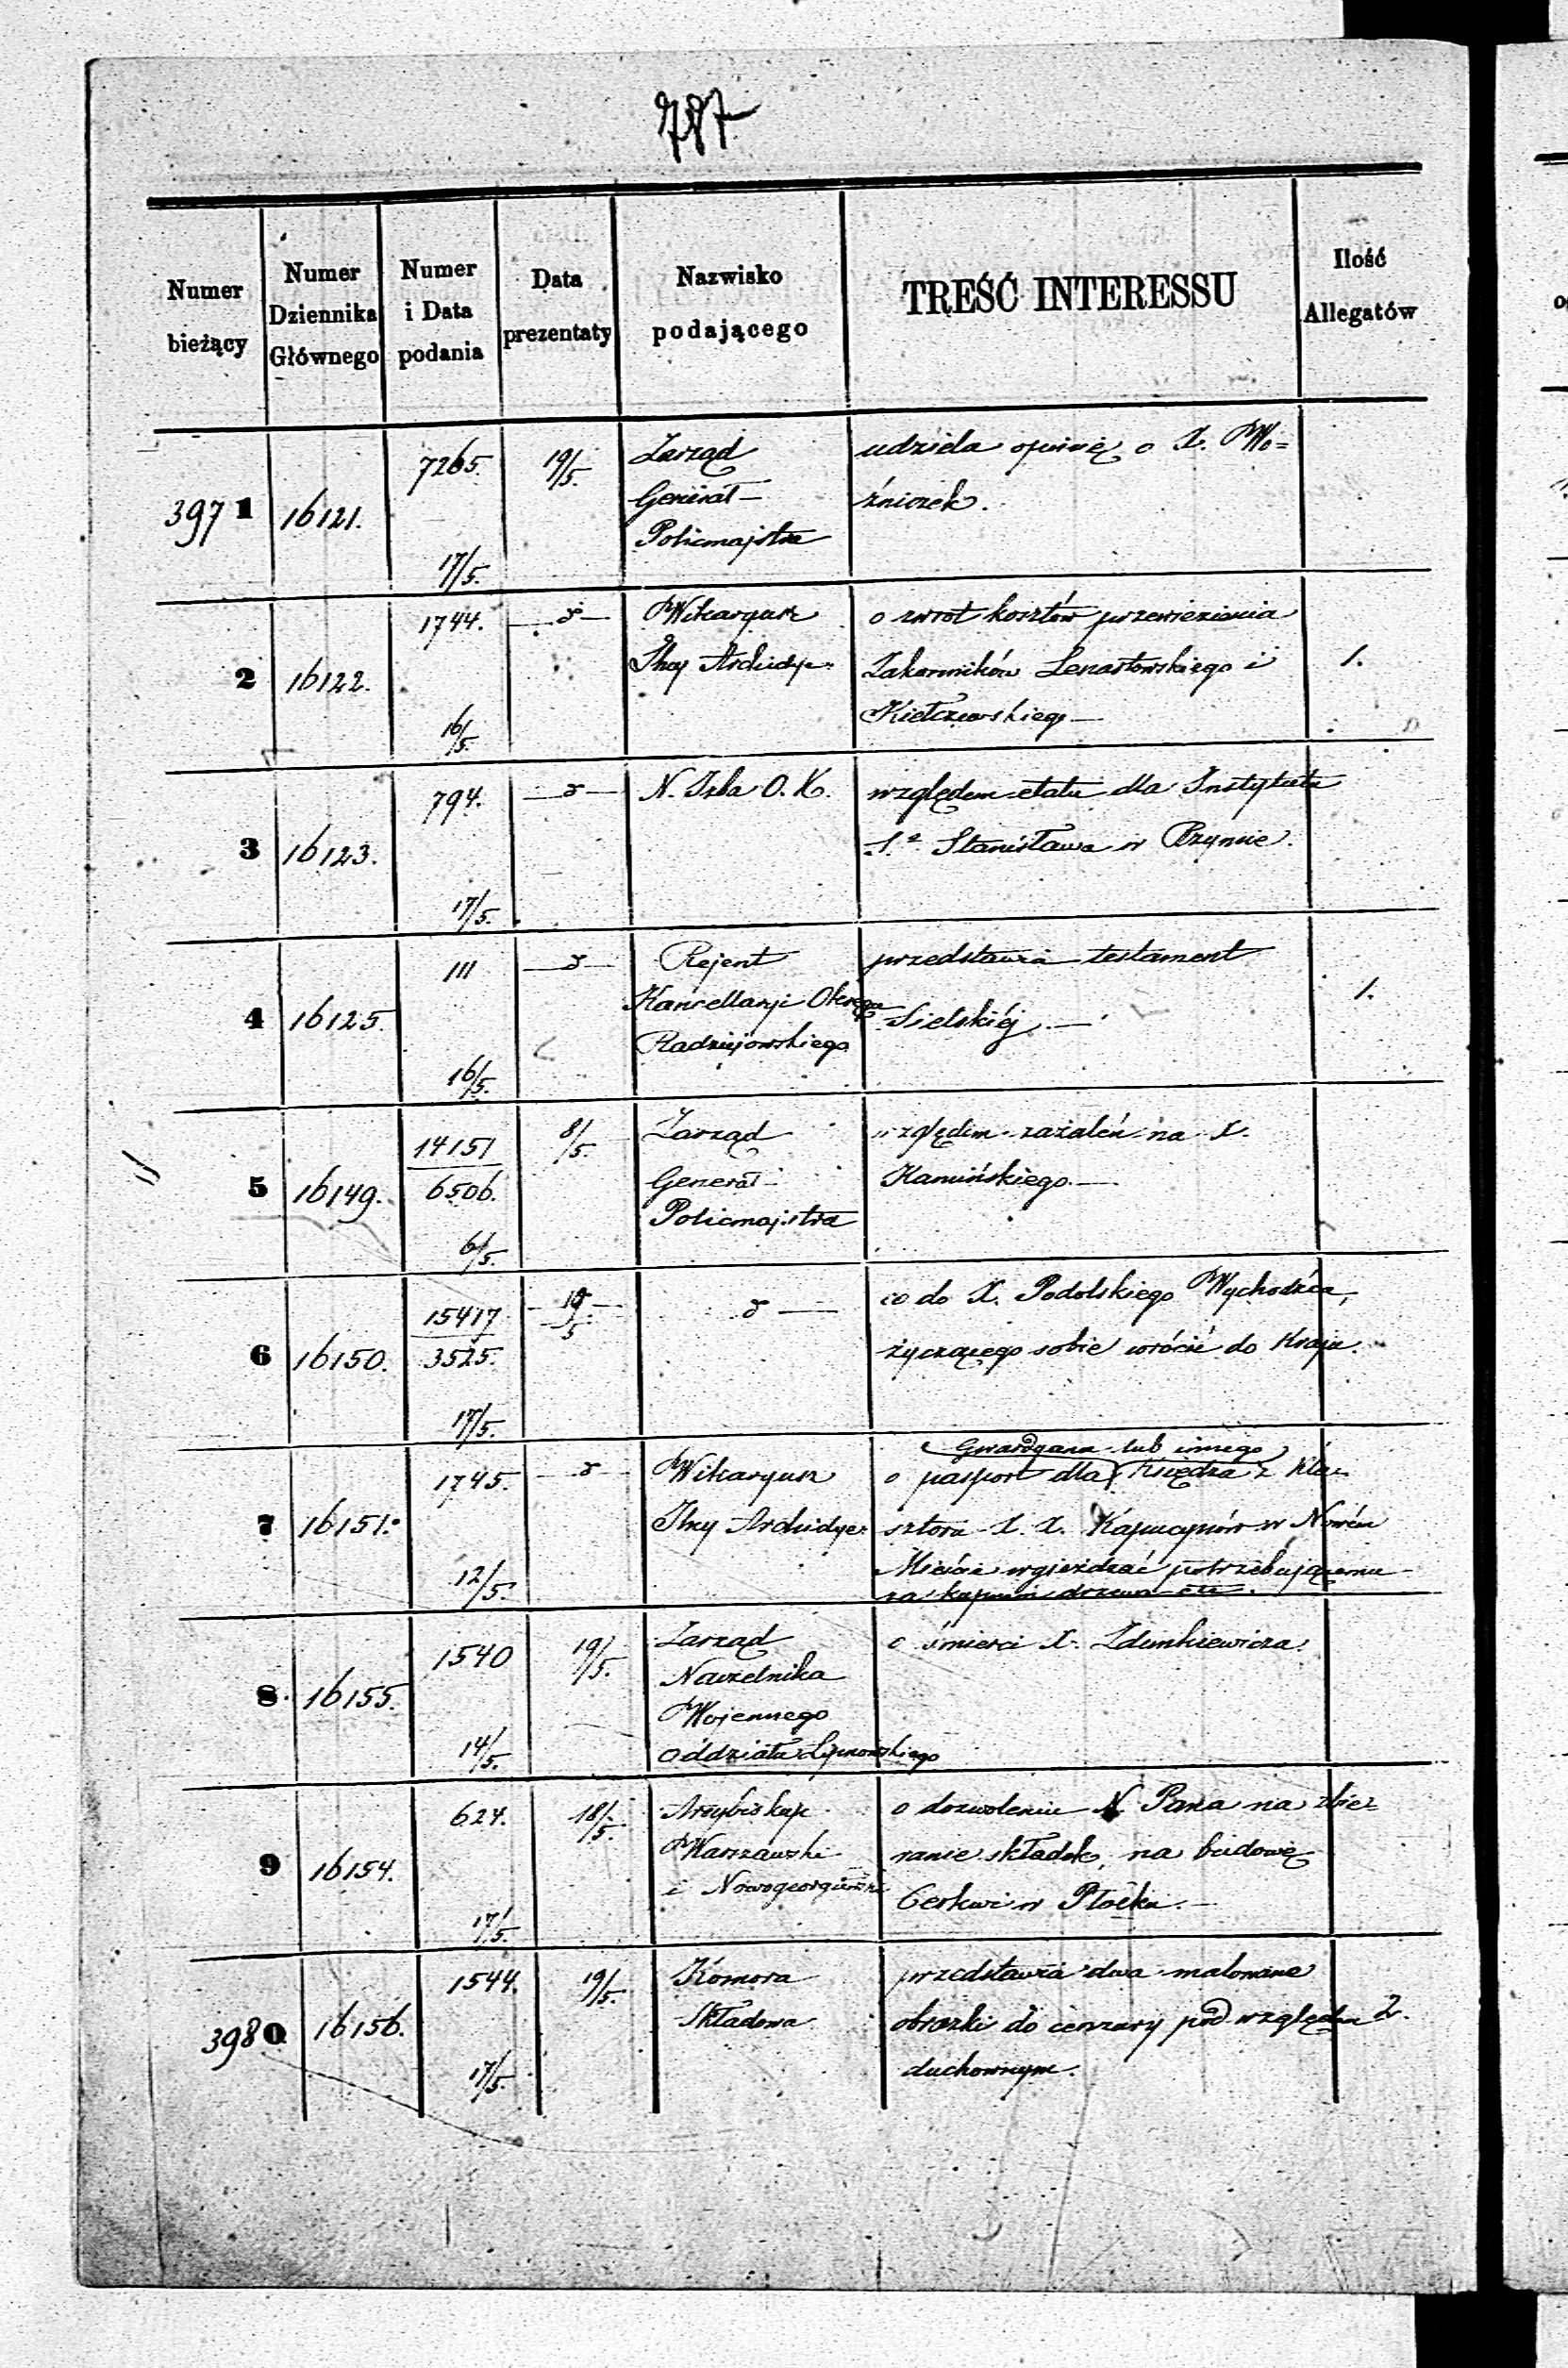 787
Numer bieżący
Numer Dziennika Głównego
Numer i Data podania
Data prezentaty
Nazwisko podającego
TREŚĆ INTERESSU
Ilość Allegatów
3971
16121.
7265.
17/5.
19/5.
Zarząd
Generał-
Policmajstra
udziela opinię o X. Wo=
źniczek.
2
16122.
1744.
16/5.
d
Wikaryusz
Archidyec
o zwrot kosztów przewiezienia
Zakonników Lenartowskiego i
Kiełczewskiego
1.
3
16123.
794.
17/5.
d
N. Izba O. K.
względem etatu dla Instytutu
Sº Stanisława w Rzymie.
4
16125.
111
16/5.
d
Rejent
Kancellaryi Okręgu
Radziejowskiego
przedstawia testament
Sielskiéj.
1.
5
16149.
14151
6506.
6/5.
8/5.
Zarząd
Generał-
Policmajstra
względem zażaleń na X.
Kamińskiego.
6
16150.
15417
3525.
17/5.
19/5.
d
co do X. Podolskiego Wychodźca,
życzącego sobie wrócić do Kraju.
7
16151.
1745.
12/5.
d
Wikaryusz
Archidyec
Gwardyana lub innego
o pasport dla Księdza z Kla-
sztoru X. X. Kapucynów w Nowém
Mieście wyjeżdżać potrzebującemu
za kupnem drzewa etc.
8.
16155.
1540
14/5.
19/5.
Zarząd
Naczelnika
Wojennego
Oddziału Lipnowskiego
o śmierci X. Zdunkiewicza.
9
16154.
624.
17/5.
18/5.
Arcybiskup
Warszawski
i Nowogeorgiewski
o dozwoleniu N. Pana na zbie-
ranie składek, na budowę
Cerkwi w Płocku.
3980
16156.
1544.
17/5.
19/5.
Komora
Składowa
przedstawia dwa malowane
obrazki do cenzury pod względem
duchownym.
2.